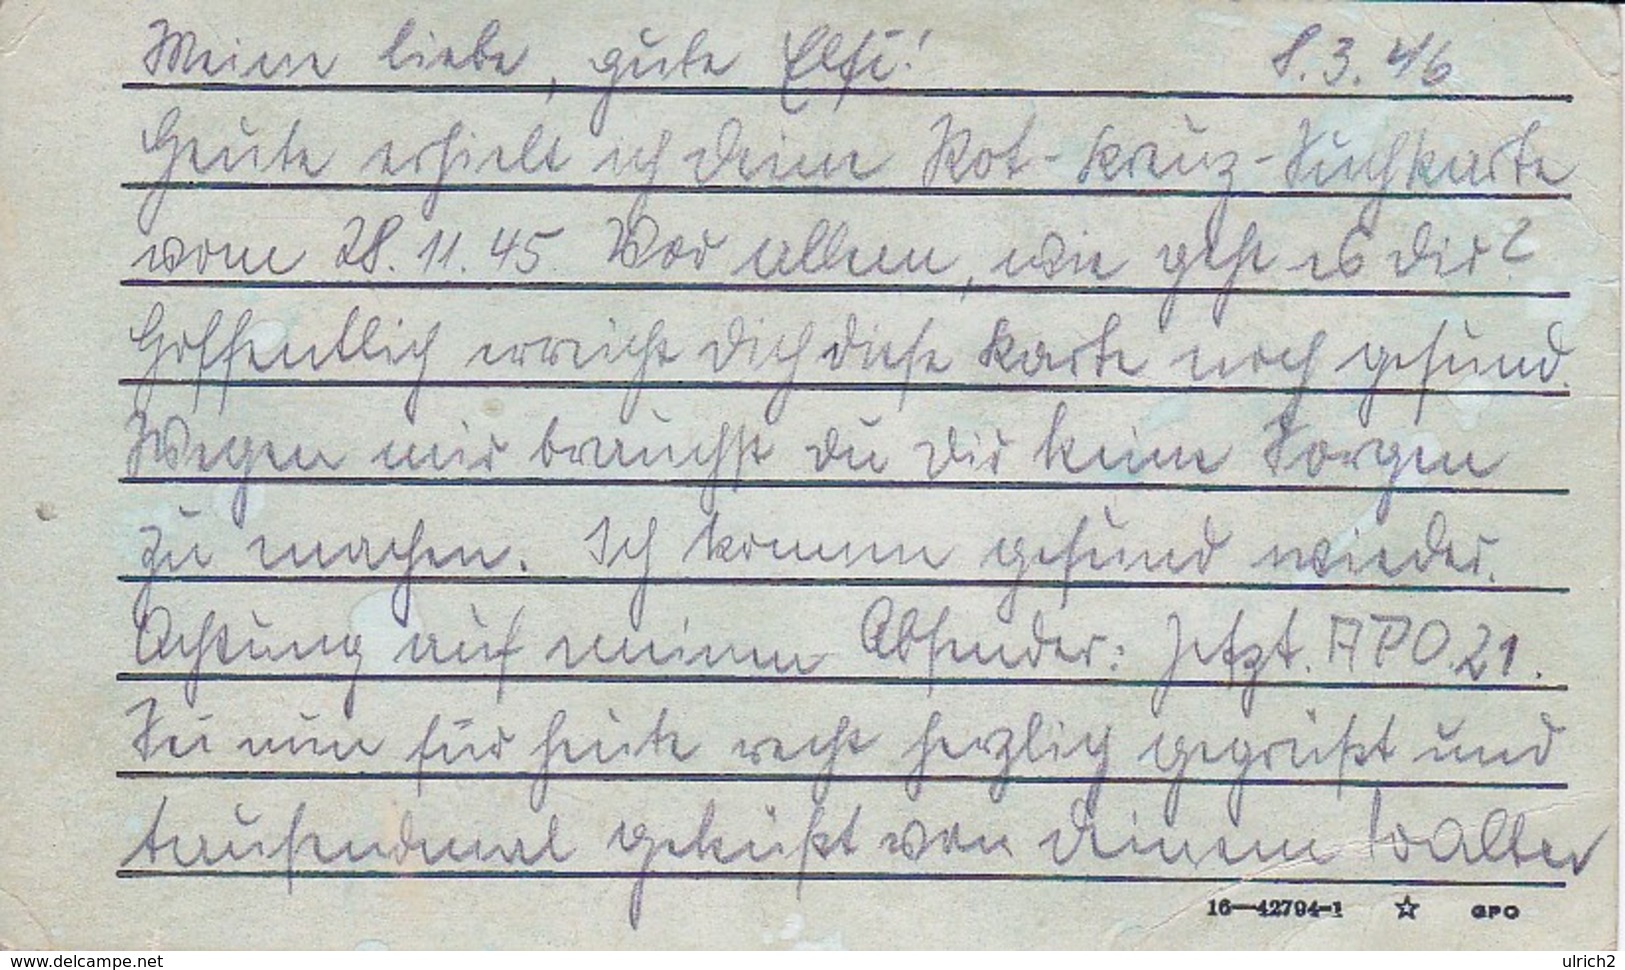 Meine liebe, gute Elfi! 8.3.46
Heute erhielt ich deine Rot-Kreuz-Suchkarte
vom 28.11.45. Vor allem, wie geht es dir?
Hoffentlich erreicht dich diese Karte noch gesund.
Wegen mir brauchst du dir keine Sorgen
zu machen. Ich komme gesund wieder.
Achtung auf meinen Absender: Jetzt. APO.21.
Sei nun für heute recht herzlich gegrüßt und
tausendmal geküßt von deinem Walter
16—42794-1 ☆ GPO
www.delcampe.net ulrich2